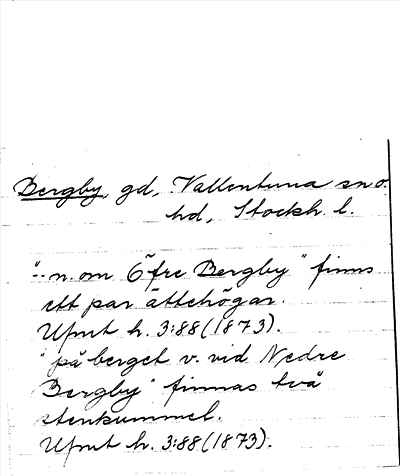 Bergby, gd, Vallentuna sn o.
hd, Stockh. l.
"- n. om Öfre Bergby" finns
ett par ättehögar.
Ufmt h. 3:88 (1873).
"på berget v. vid Nedre
Bergby" finnas två
stenkummel.
Ufmt h. 3:88 (1873).